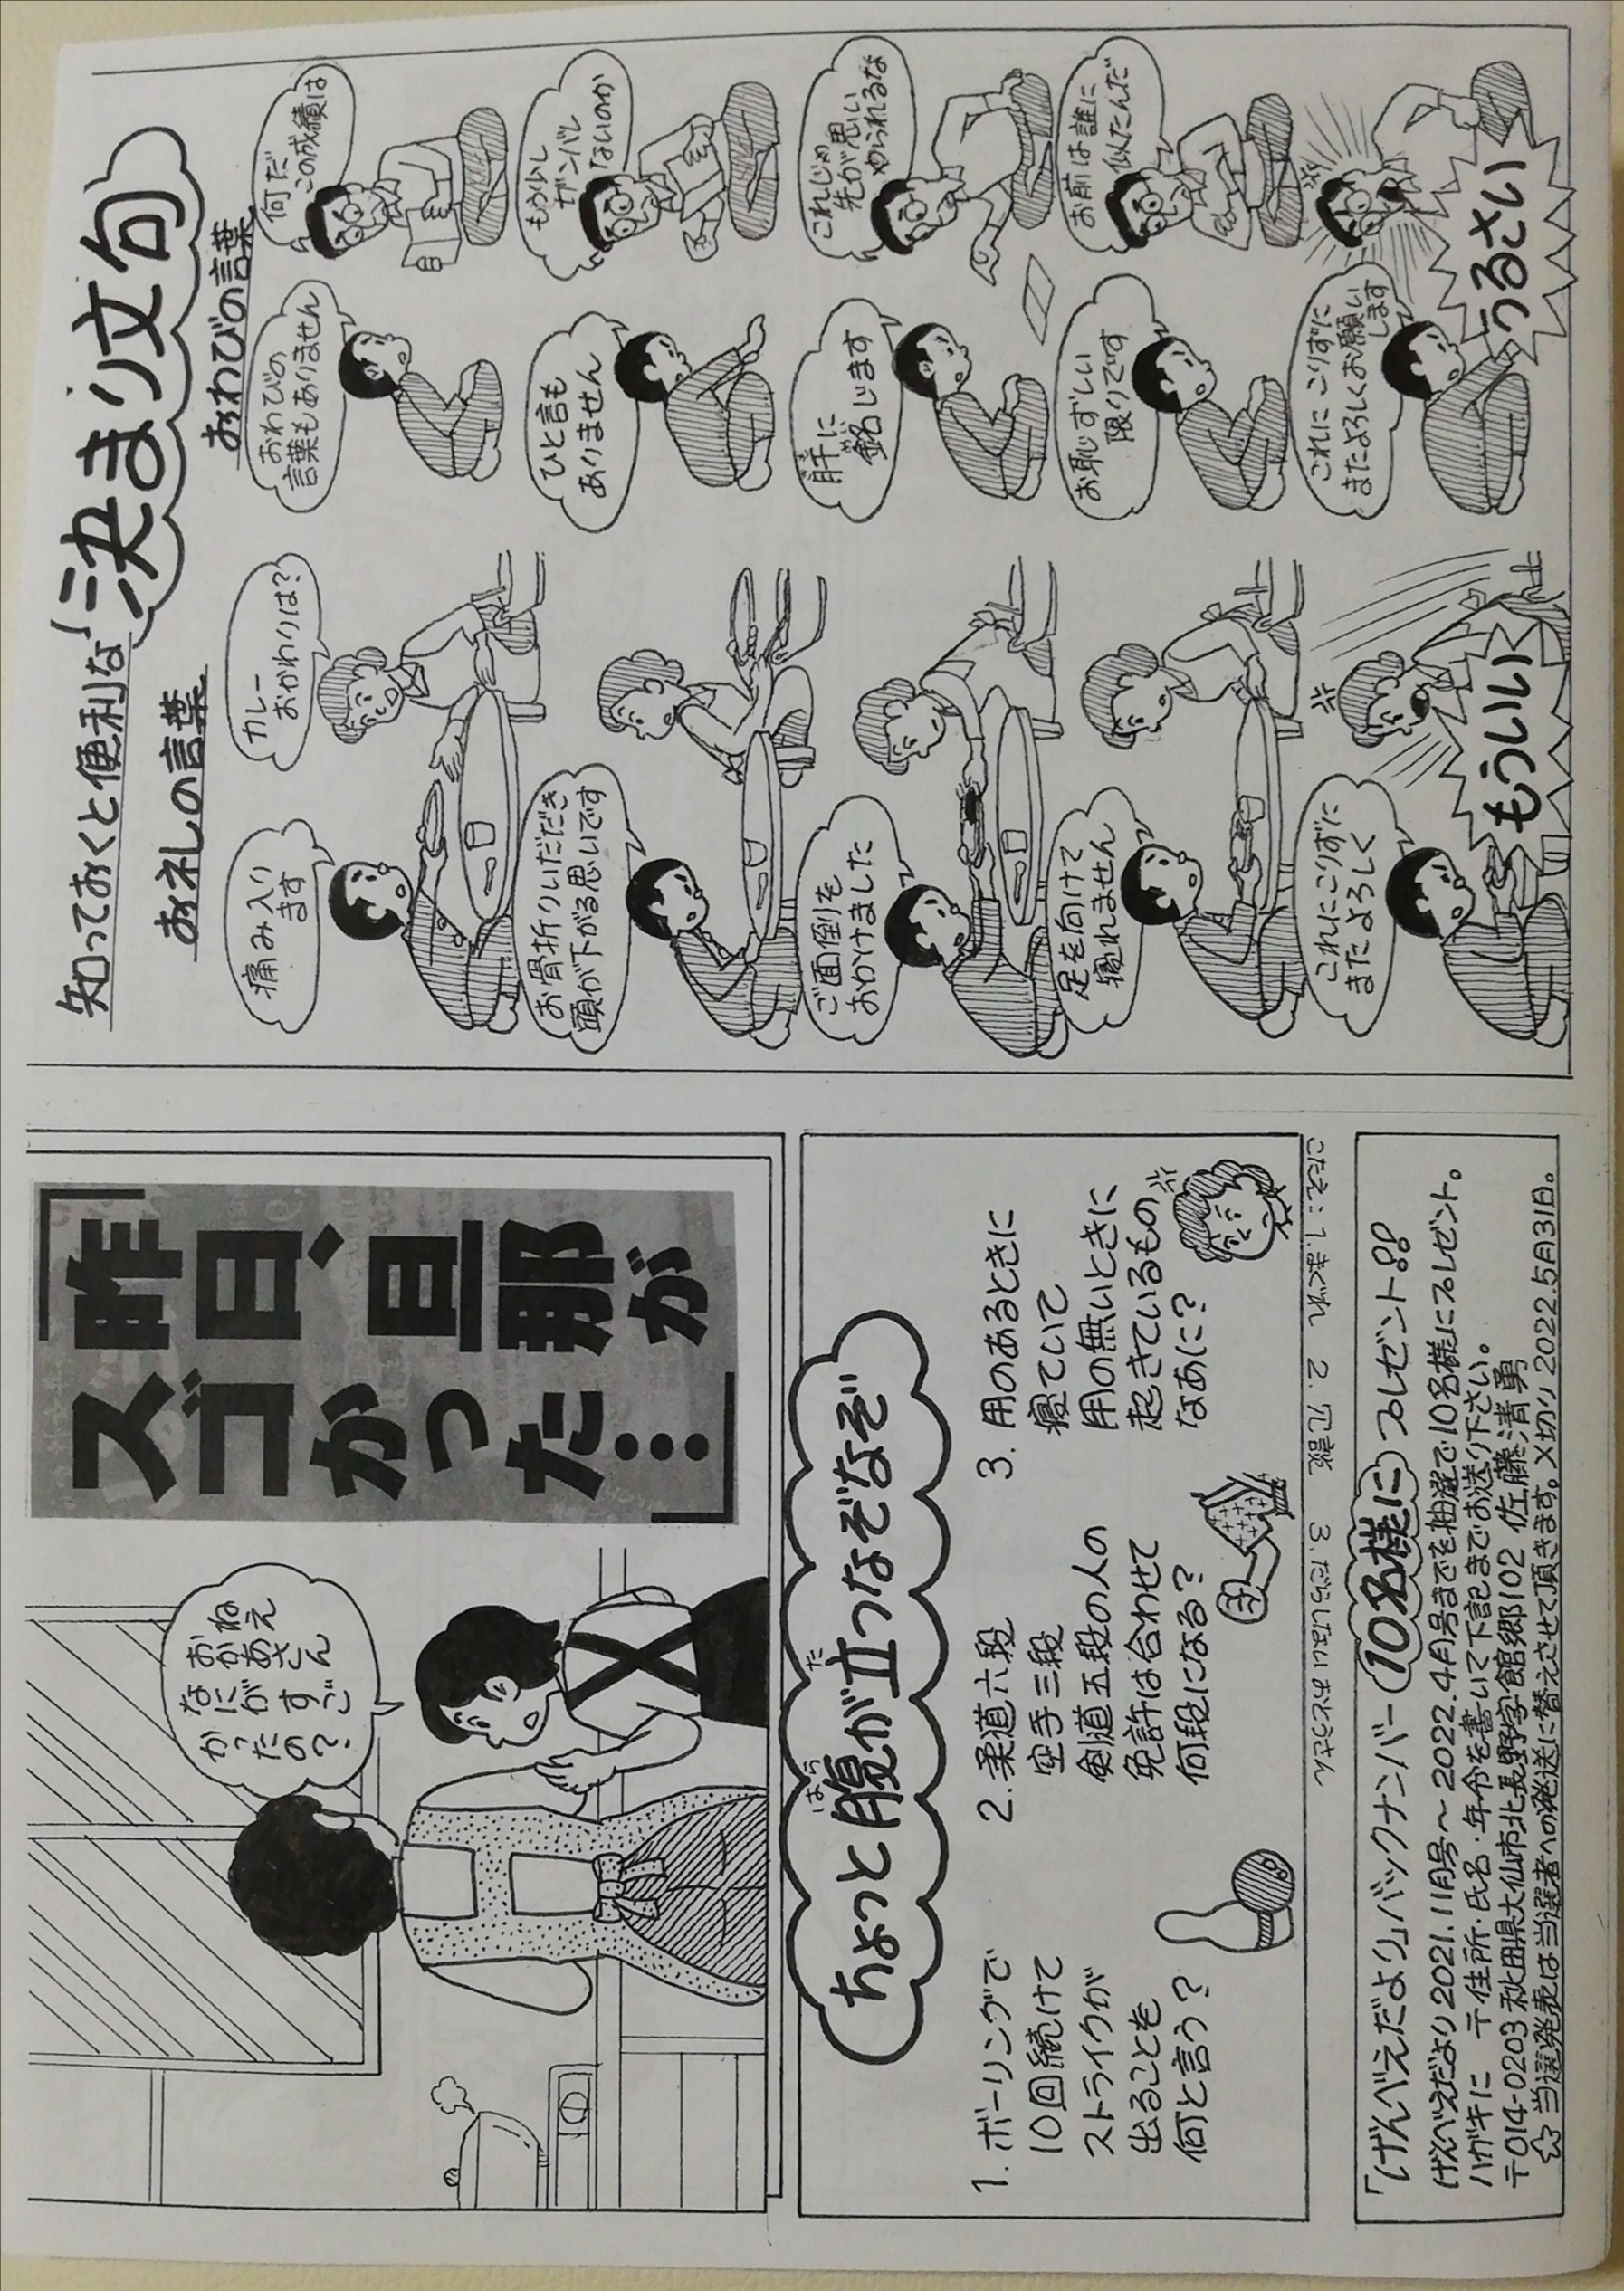 「昨日、旦那が
スゴかった…」
ねえ
おかあさん
なにがすご
かったの?
ちょっと腹が立つなぞなぞ
はら
た
1. ボーリングで
10回続けて
ストライクが
出ることを
何と言う?
2. 柔道六段
空手三段
剣道五段の人の
免許は合わせて
何段になる?
3. 用のあるときに
寝ていて
用の無いときに
起きているもの
なあに?
こたえ: 1.まぐれ 2. 冗談 3. だらしないおとうさん
「げんべえだより」バックナンバー 10名様に プレゼント!!
げんべえだより2021.11月号〜2022.4月号までを抽選で10名様にプレゼント。
ハガキに 〒住所・氏名・年令を書いて下記までお送り下さい。
〒014-0203 秋田県大仙市北長野字館郷102 佐藤清勇
☆当選発表は当選者への発送に替えさせて頂きます。〆切り2022.5月31日。
知っておくと便利な「決まり文句」
お礼しの言葉
カレー
おかわりは?
痛み入り
ます
お骨折りいただき
頭が下がる思いです
ご面倒を
おかけました
足を向けて
寝れません
これにこりずに
またよろしく
もういい
おわびの言葉
何だ
この成績は
おわびの
言葉もありません
もう少し
ガンバレ
ないのか
ひと言も
ありません
これじゃ
先が思い
やられるな
肝に
銘じます
お前は誰に
似たんだ
お恥ずしい
限りです
これに こりずに
またよろしくお願い
します
うるさい